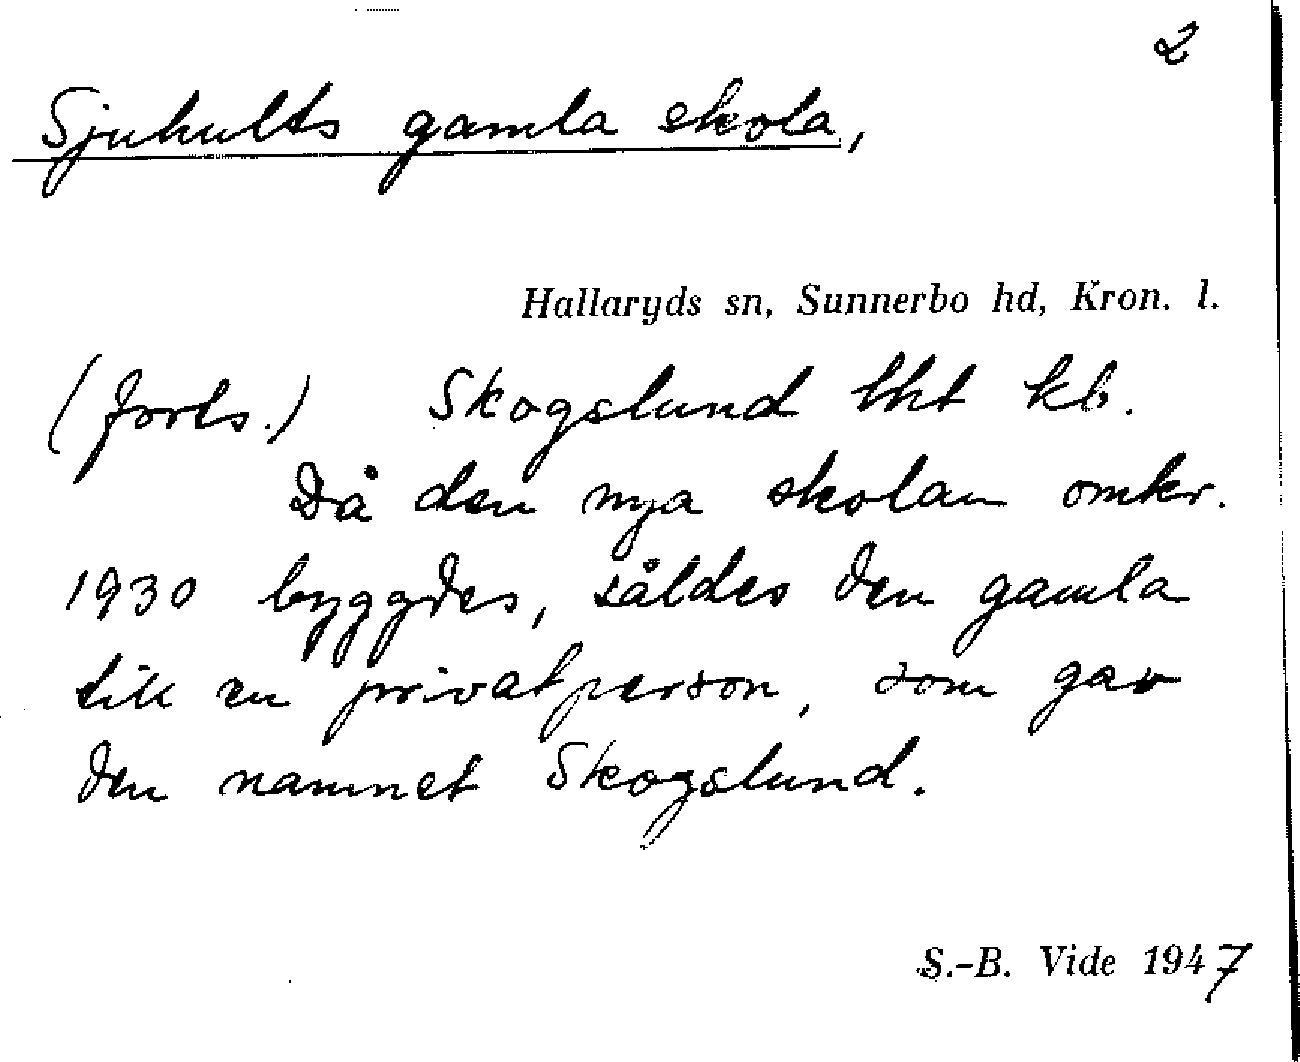 2
Sjuhults gamla skola,
Hallaryds sn, Sunnerbo hd, Kron. l.
(forts.) Skogslund lht kb.
Då den nya skolan omkr.
1930 byggdes, såldes den gamla
till en privatperson, som gav
den namnet Skogslund.
S.-B. Vide 1947